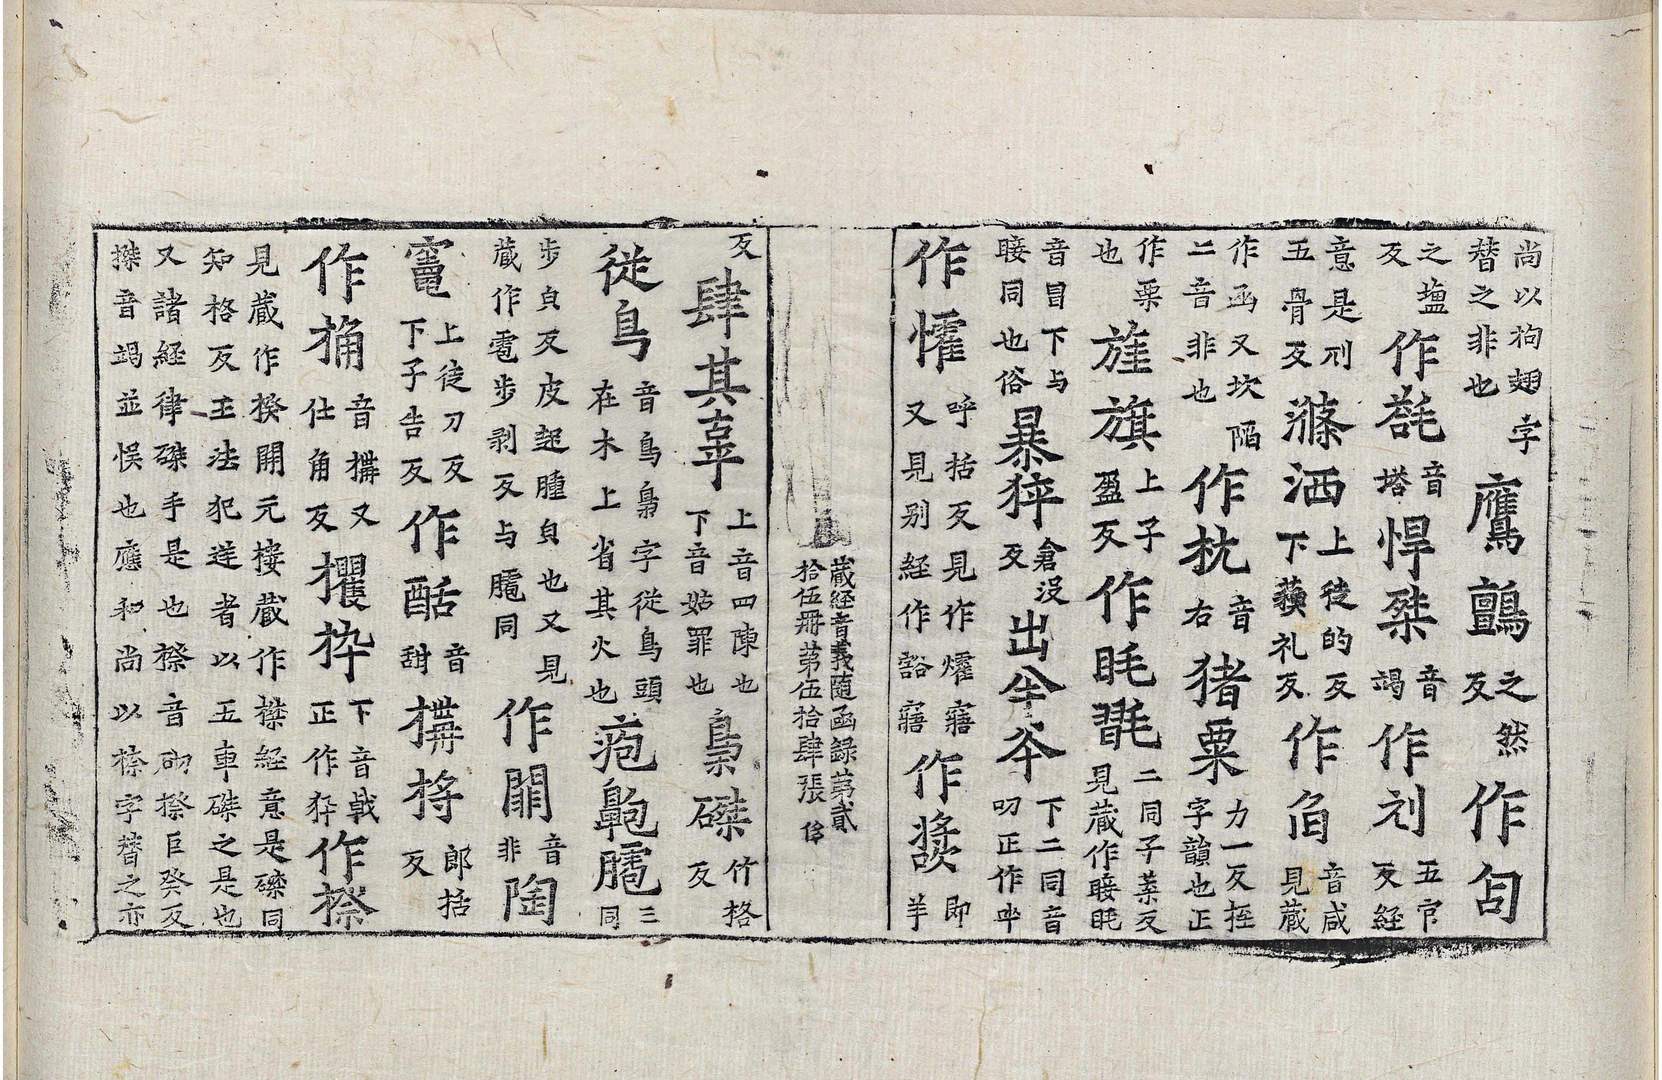 尚以拘翅字
替之非也
鷹鸇
之然
反
作匃
之𡑞
反
作毾
音
塔
悍桀
音
竭
作刓
五官
反経
意是刖
五骨反
滌洒
上徒的反
下蘓礼反
作臽
音咸
見蔵
作函又坎陷
二音非也
作枕
音
右
猪粟
力一反挃
字韻也正
作栗
也
旌旗
上子
盈反
作眊毷
二同子葉反
見蔵作睫眊
音目下与
睫同也俗
暴猝
倉没
反
出
下二同音
叨正作
作懽
呼括反見作㸌寤
又見别経作豁寤
作𤅡
即
羊
蔵経音義随函録第貳
拾伍冊第伍拾肆張
反
肆其辜
上音四陳也
下音姑罪也
梟磔
竹格
反
従鳥
音鳥梟字從鳥頭
在木上省其火也
疱皰𦢊
三
同
步皃反皮起腫皃也又見
蔵作雹步剥反与𦢊同
作關
音
非
陶
竈
上徒刀反
下子告反
作酤
音
甜
㨍捋
郎括
反
作捔
音㨍又
仕角反
攫捽
下音戟
正作
作㩒
見蔵作揆開元楼蔵作㩒経意是磔同
知格反王法犯送者以五車磔之是也
又諸経律磔手是也㩒音砌揬巨癸反
搩音竭並悮也應和尚以㩒字替之亦